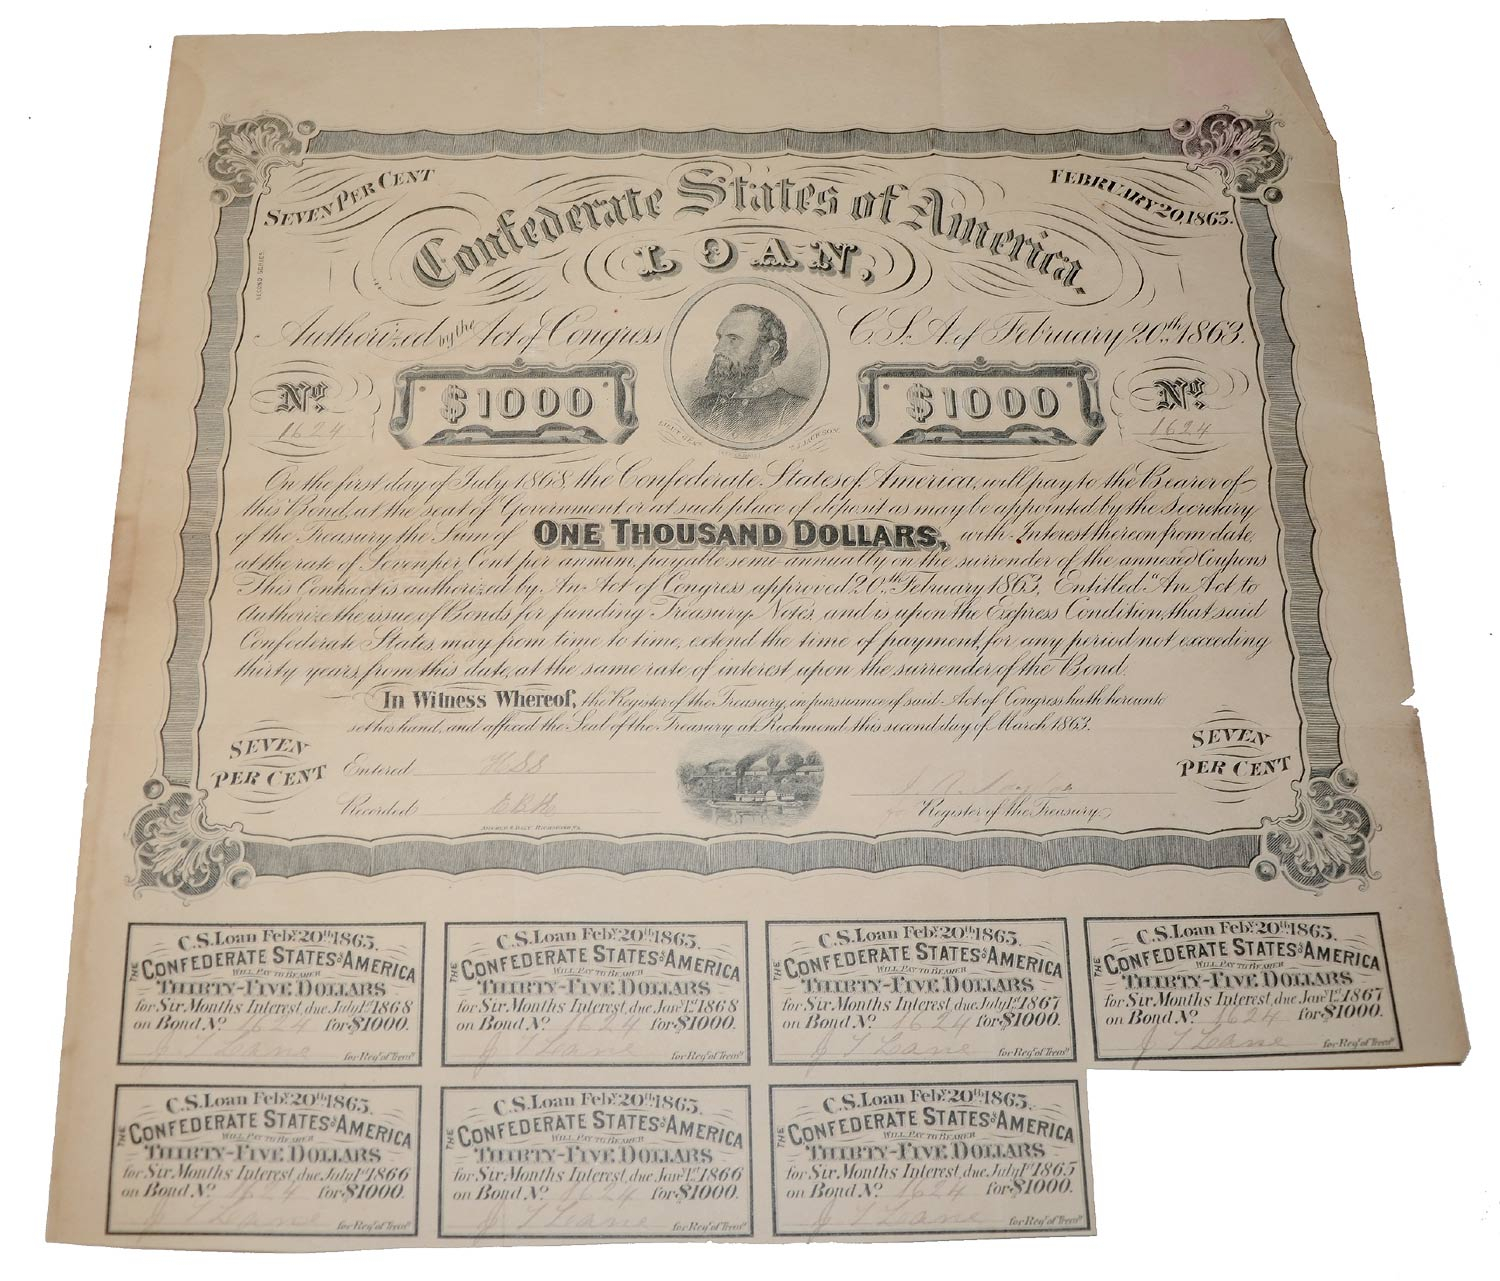 SEVEN PER CENT
FEBRUARY 20, 1863.
Confederate States of America
LOAN,
SECOND SERIES
Authorized by the Act of Congress C.S.A. of February 20th 1863.
No. $1000 $1000 No.
1624 1624
LIEUT. GEN. T. J. JACKSON
On the first day of July 1868, the Confederate States of America, will pay to the Bearer of
this Bond, at the seat of Government or at such place of deposit as may be appointed by the Secretary
of the Treasury the Sum of ONE THOUSAND DOLLARS, with Interest thereon from date,
at the rate of Seven per Cent per annum, payable semi-annually on the surrender of the annexed Coupons
This Contract is authorized by An Act of Congress approved 20th February 1863, Entitled "An Act to
Authorize the issue of Bonds for funding Treasury Notes, and is upon the Express Condition, that said
Confederate States, may from time to time, extend the time of payment, for any period not exceeding
thirty years, from this date, at the same rate of interest upon the surrender of the Bond.
In Witness Whereof, the Register of the Treasury, in pursuance of said Act of Congress hath hereunto
set his hand, and affixed the Seal of the Treasury at Richmond this second day of March 1863.
SEVEN PER CENT
SEVEN PER CENT
Entered HSS
Recorded
J. A. Taylor
for Register of the Treasury.
ARCHER & DALY RICHMOND VA.
C.S. Loan Feby. 20th 1863.
THE CONFEDERATE STATES OF AMERICA
WILL PAY TO BEARER
THIRTY-FIVE DOLLARS
for Six Months Interest, due July 1st 1868
on Bond No. 1624 for $1000.
J T Lane for Reg. of Treasy.
C.S. Loan Feby. 20th 1863.
THE CONFEDERATE STATES OF AMERICA
WILL PAY TO BEARER
THIRTY-FIVE DOLLARS
for Six Months Interest, due Jany. 1st 1868
on Bond No. 1624 for $1000.
J T Lane for Reg. of Treasy.
C.S. Loan Feby. 20th 1863.
THE CONFEDERATE STATES OF AMERICA
WILL PAY TO BEARER
THIRTY-FIVE DOLLARS
for Six Months Interest, due July 1st 1867
on Bond No. 1624 for $1000.
J T Lane for Reg. of Treasy.
C.S. Loan Feby. 20th 1863.
THE CONFEDERATE STATES OF AMERICA
WILL PAY TO BEARER
THIRTY-FIVE DOLLARS
for Six Months Interest, due Jany. 1st 1867
on Bond No. 1624 for $1000.
J T Lane for Reg. of Treasy.
C.S. Loan Feby. 20th 1863.
THE CONFEDERATE STATES OF AMERICA
WILL PAY TO BEARER
THIRTY-FIVE DOLLARS
for Six Months Interest, due July 1st 1866
on Bond No. 1624 for $1000.
J T Lane for Reg. of Treasy.
C.S. Loan Feby. 20th 1863.
THE CONFEDERATE STATES OF AMERICA
WILL PAY TO BEARER
THIRTY-FIVE DOLLARS
for Six Months Interest, due Jany. 1st 1866
on Bond No. 1624 for $1000.
J T Lane for Reg. of Treasy.
C.S. Loan Feby. 20th 1863.
THE CONFEDERATE STATES OF AMERICA
WILL PAY TO BEARER
THIRTY-FIVE DOLLARS
for Six Months Interest, due July 1st 1865
on Bond No. 1624 for $1000.
J T Lane for Reg. of Treasy.